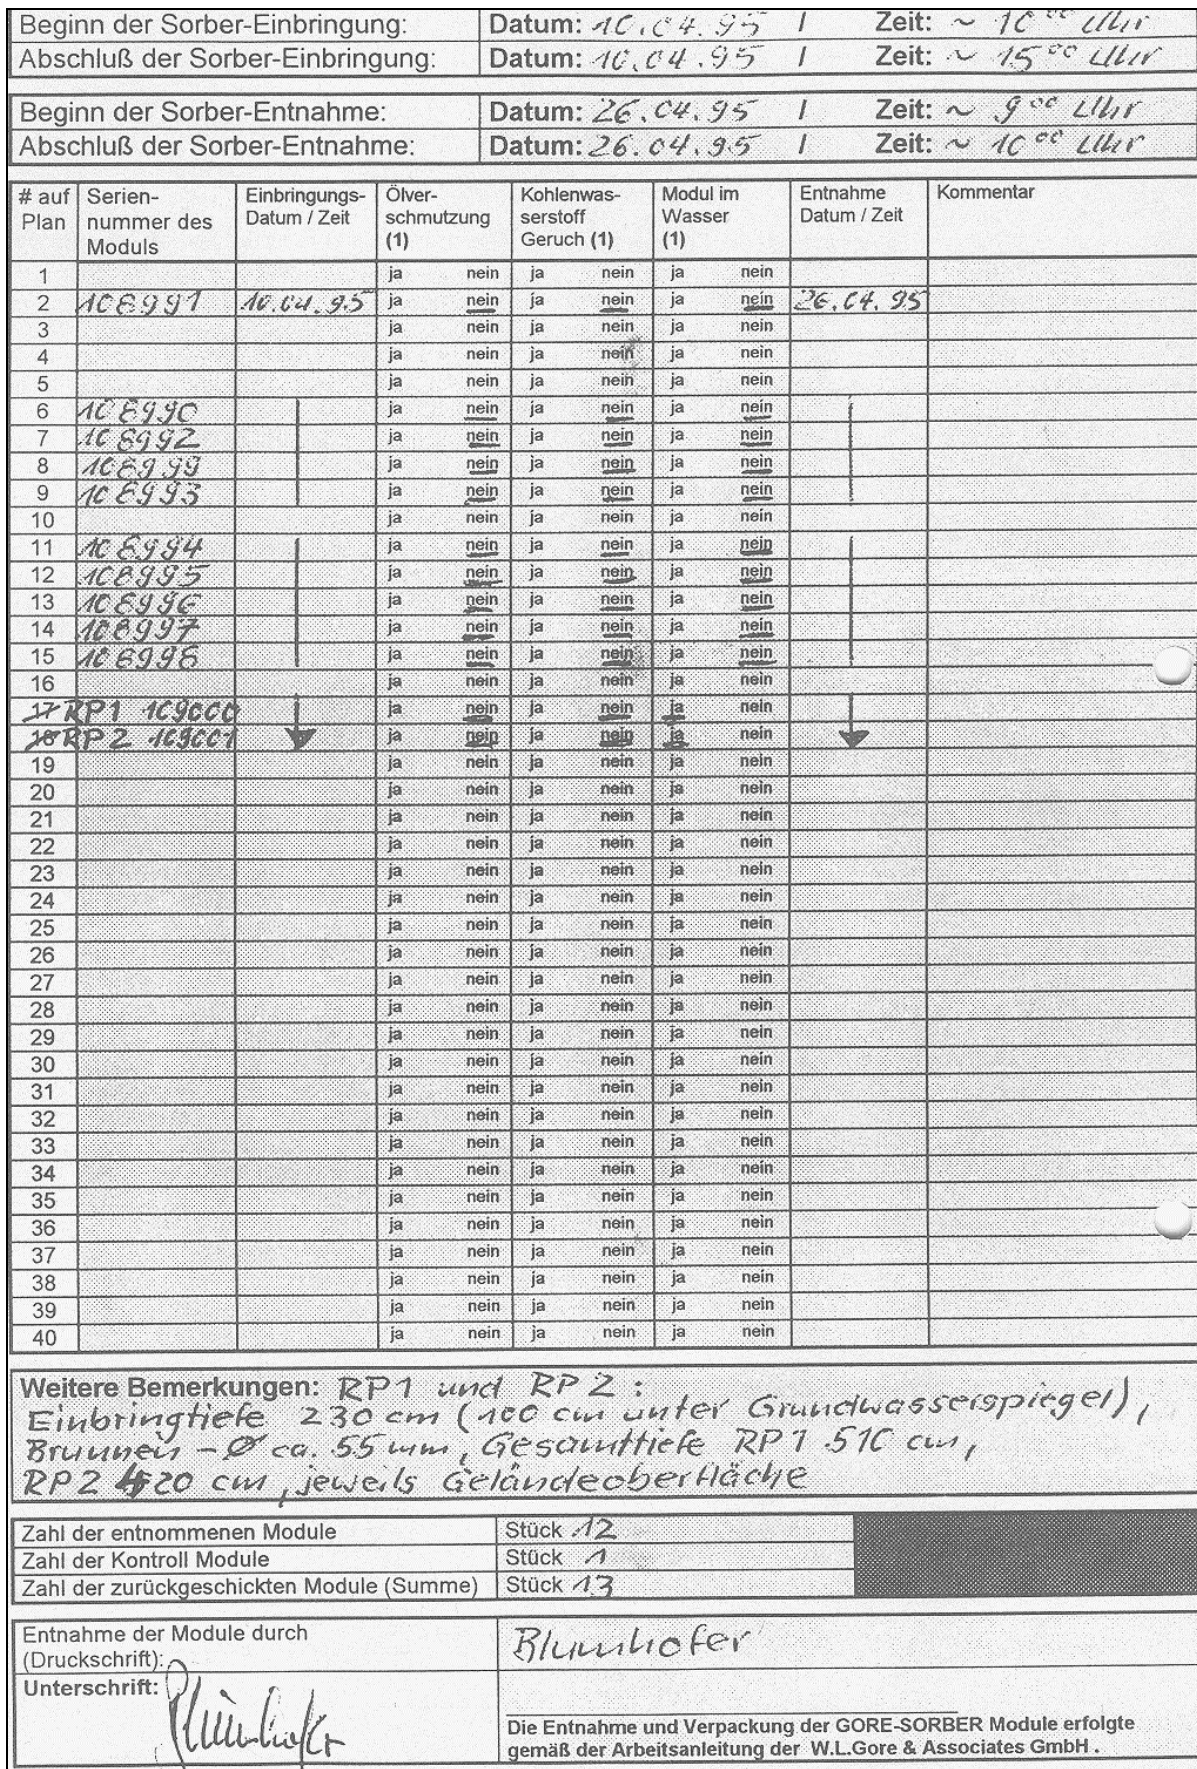 Beginn der Sorber-Einbringung: Datum: 10.04.95 / Zeit: ~ 10⁰⁰ Uhr
Abschluß der Sorber-Einbringung: Datum: 10.04.95 / Zeit: ~ 15⁰⁰ Uhr
Beginn der Sorber-Entnahme: Datum: 26.04.95 / Zeit: ~ 9⁰⁰ Uhr
Abschluß der Sorber-Entnahme: Datum: 26.04.95 / Zeit: ~ 10⁰⁰ Uhr
# auf Serien- Einbringungs- Ölver- Kohlenwas- Modul im Entnahme Kommentar
Plan nummer des Datum / Zeit schmutzung serstoff Wasser Datum / Zeit
Moduls (1) Geruch (1) (1)
1 ja nein ja nein ja nein
2 108991 10.04.95 ja nein ja nein ja nein 26.04.95
3 ja nein ja nein ja nein
4 ja nein ja nein ja nein
5 ja nein ja nein ja nein
6 108990 ja nein ja nein ja nein
7 108992 ja nein ja nein ja nein
8 108999 ja nein ja nein ja nein
9 108993 ja nein ja nein ja nein
10 ja nein ja nein ja nein
11 108994 ja nein ja nein ja nein
12 108995 ja nein ja nein ja nein
13 108996 ja nein ja nein ja nein
14 108997 ja nein ja nein ja nein
15 108998 ja nein ja nein ja nein
16 ja nein ja nein ja nein
17 RP1 109000 ja nein ja nein ja nein
18 RP2 109001 ja nein ja nein ja nein
19 ja nein ja nein ja nein
20 ja nein ja nein ja nein
21 ja nein ja nein ja nein
22 ja nein ja nein ja nein
23 ja nein ja nein ja nein
24 ja nein ja nein ja nein
25 ja nein ja nein ja nein
26 ja nein ja nein ja nein
27 ja nein ja nein ja nein
28 ja nein ja nein ja nein
29 ja nein ja nein ja nein
30 ja nein ja nein ja nein
31 ja nein ja nein ja nein
32 ja nein ja nein ja nein
33 ja nein ja nein ja nein
34 ja nein ja nein ja nein
35 ja nein ja nein ja nein
36 ja nein ja nein ja nein
37 ja nein ja nein ja nein
38 ja nein ja nein ja nein
39 ja nein ja nein ja nein
40 ja nein ja nein ja nein
Weitere Bemerkungen: RP1 und RP2:
Einbringtiefe 230 cm (100 cm unter Grundwasserspiegel),
Brunnen-Ø ca. 55 mm, Gesamttiefe RP1 510 cm,
RP2 420 cm, jeweils Geländeoberfläche
Zahl der entnommenen Module Stück 12
Zahl der Kontroll Module Stück 1
Zahl der zurückgeschickten Module (Summe) Stück 13
Entnahme der Module durch Blumhofer
(Druckschrift):
Unterschrift: Blumhofer
Die Entnahme und Verpackung der GORE-SORBER Module erfolgte
gemäß der Arbeitsanleitung der W.L.Gore & Associates GmbH .